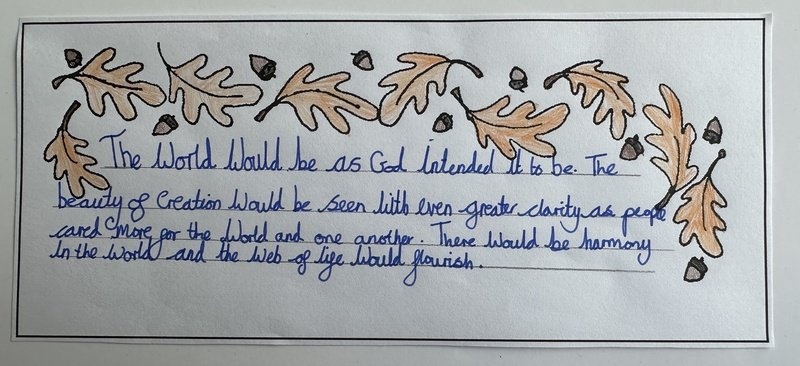 The World Would be as God intended it to be. The
beauty of Creation Would be seen with even greater clarity as people
cared more for the World and one another. There Would be harmony
in the World and the Web of life Would flourish.